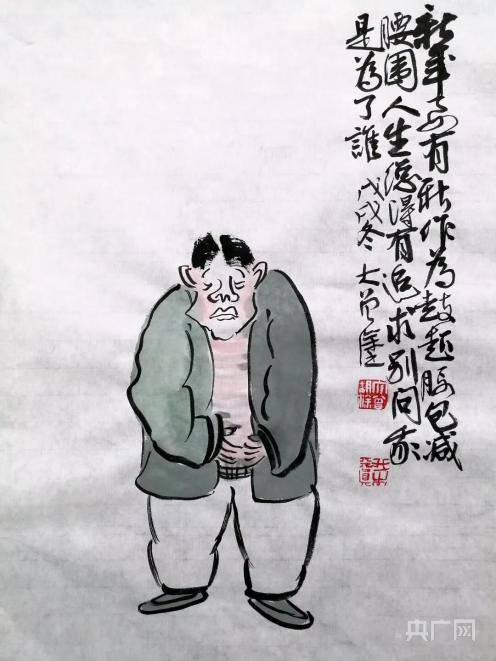 新年要有新作为鼓起腰包减
腰围人生总得有追求别问我
是為了誰 戊戌冬 大曾
央广网